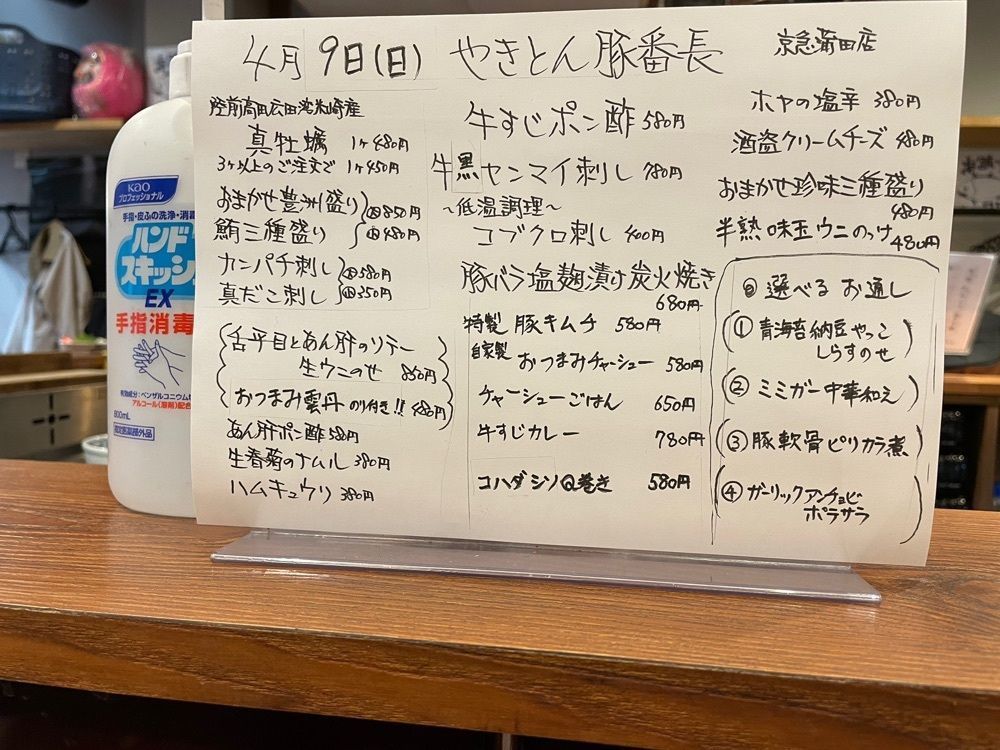 4月 9日(日) やきとん豚番長 京急蒲田店
陸前高田広田湾米崎産
真牡蠣 1ヶ480円
3ヶ以上のご注文で 1ヶ450円
おまかせ豊洲盛り 大850円
鮪三種盛り 小480円
カンパチ刺し 大580円
真だこ刺し 小350円
舌平目とあん肝のソテー
生ウニのせ 880円
おつまみ雲丹 のり付き!! 480円
あん肝ポン酢 580円
生春菊のナムル 380円
ハムキュウリ 380円
牛すじポン酢 580円
牛黒センマイ刺し 780円
～低温調理～
コブクロ刺し 400円
豚バラ塩麹漬け炭火焼き
680円
特製 豚キムチ 580円
自家製 おつまみチャーシュー 580円
チャーシューごはん 650円
牛すじカレー 780円
コハダシソQ巻き 580円
ホヤの塩辛 380円
酒盗クリームチーズ 480円
おまかせ珍味三種盛り
480円
半熟味玉ウニのっけ 480円
選べるお通し
① 青海苔納豆やっこ
しらすのせ
② ミミガー中華和え
③ 豚軟骨ピリカラ煮
④ ガーリックアンチョビ
ポテサラ
Kao
プロフェッショナル
手指・皮ふの洗浄・消毒
ハンド
スキッシュ
EX
手指消毒
有効成分:ベンザルコニウム
アルコール(溶剤)配合
800mL
指定医薬部外品